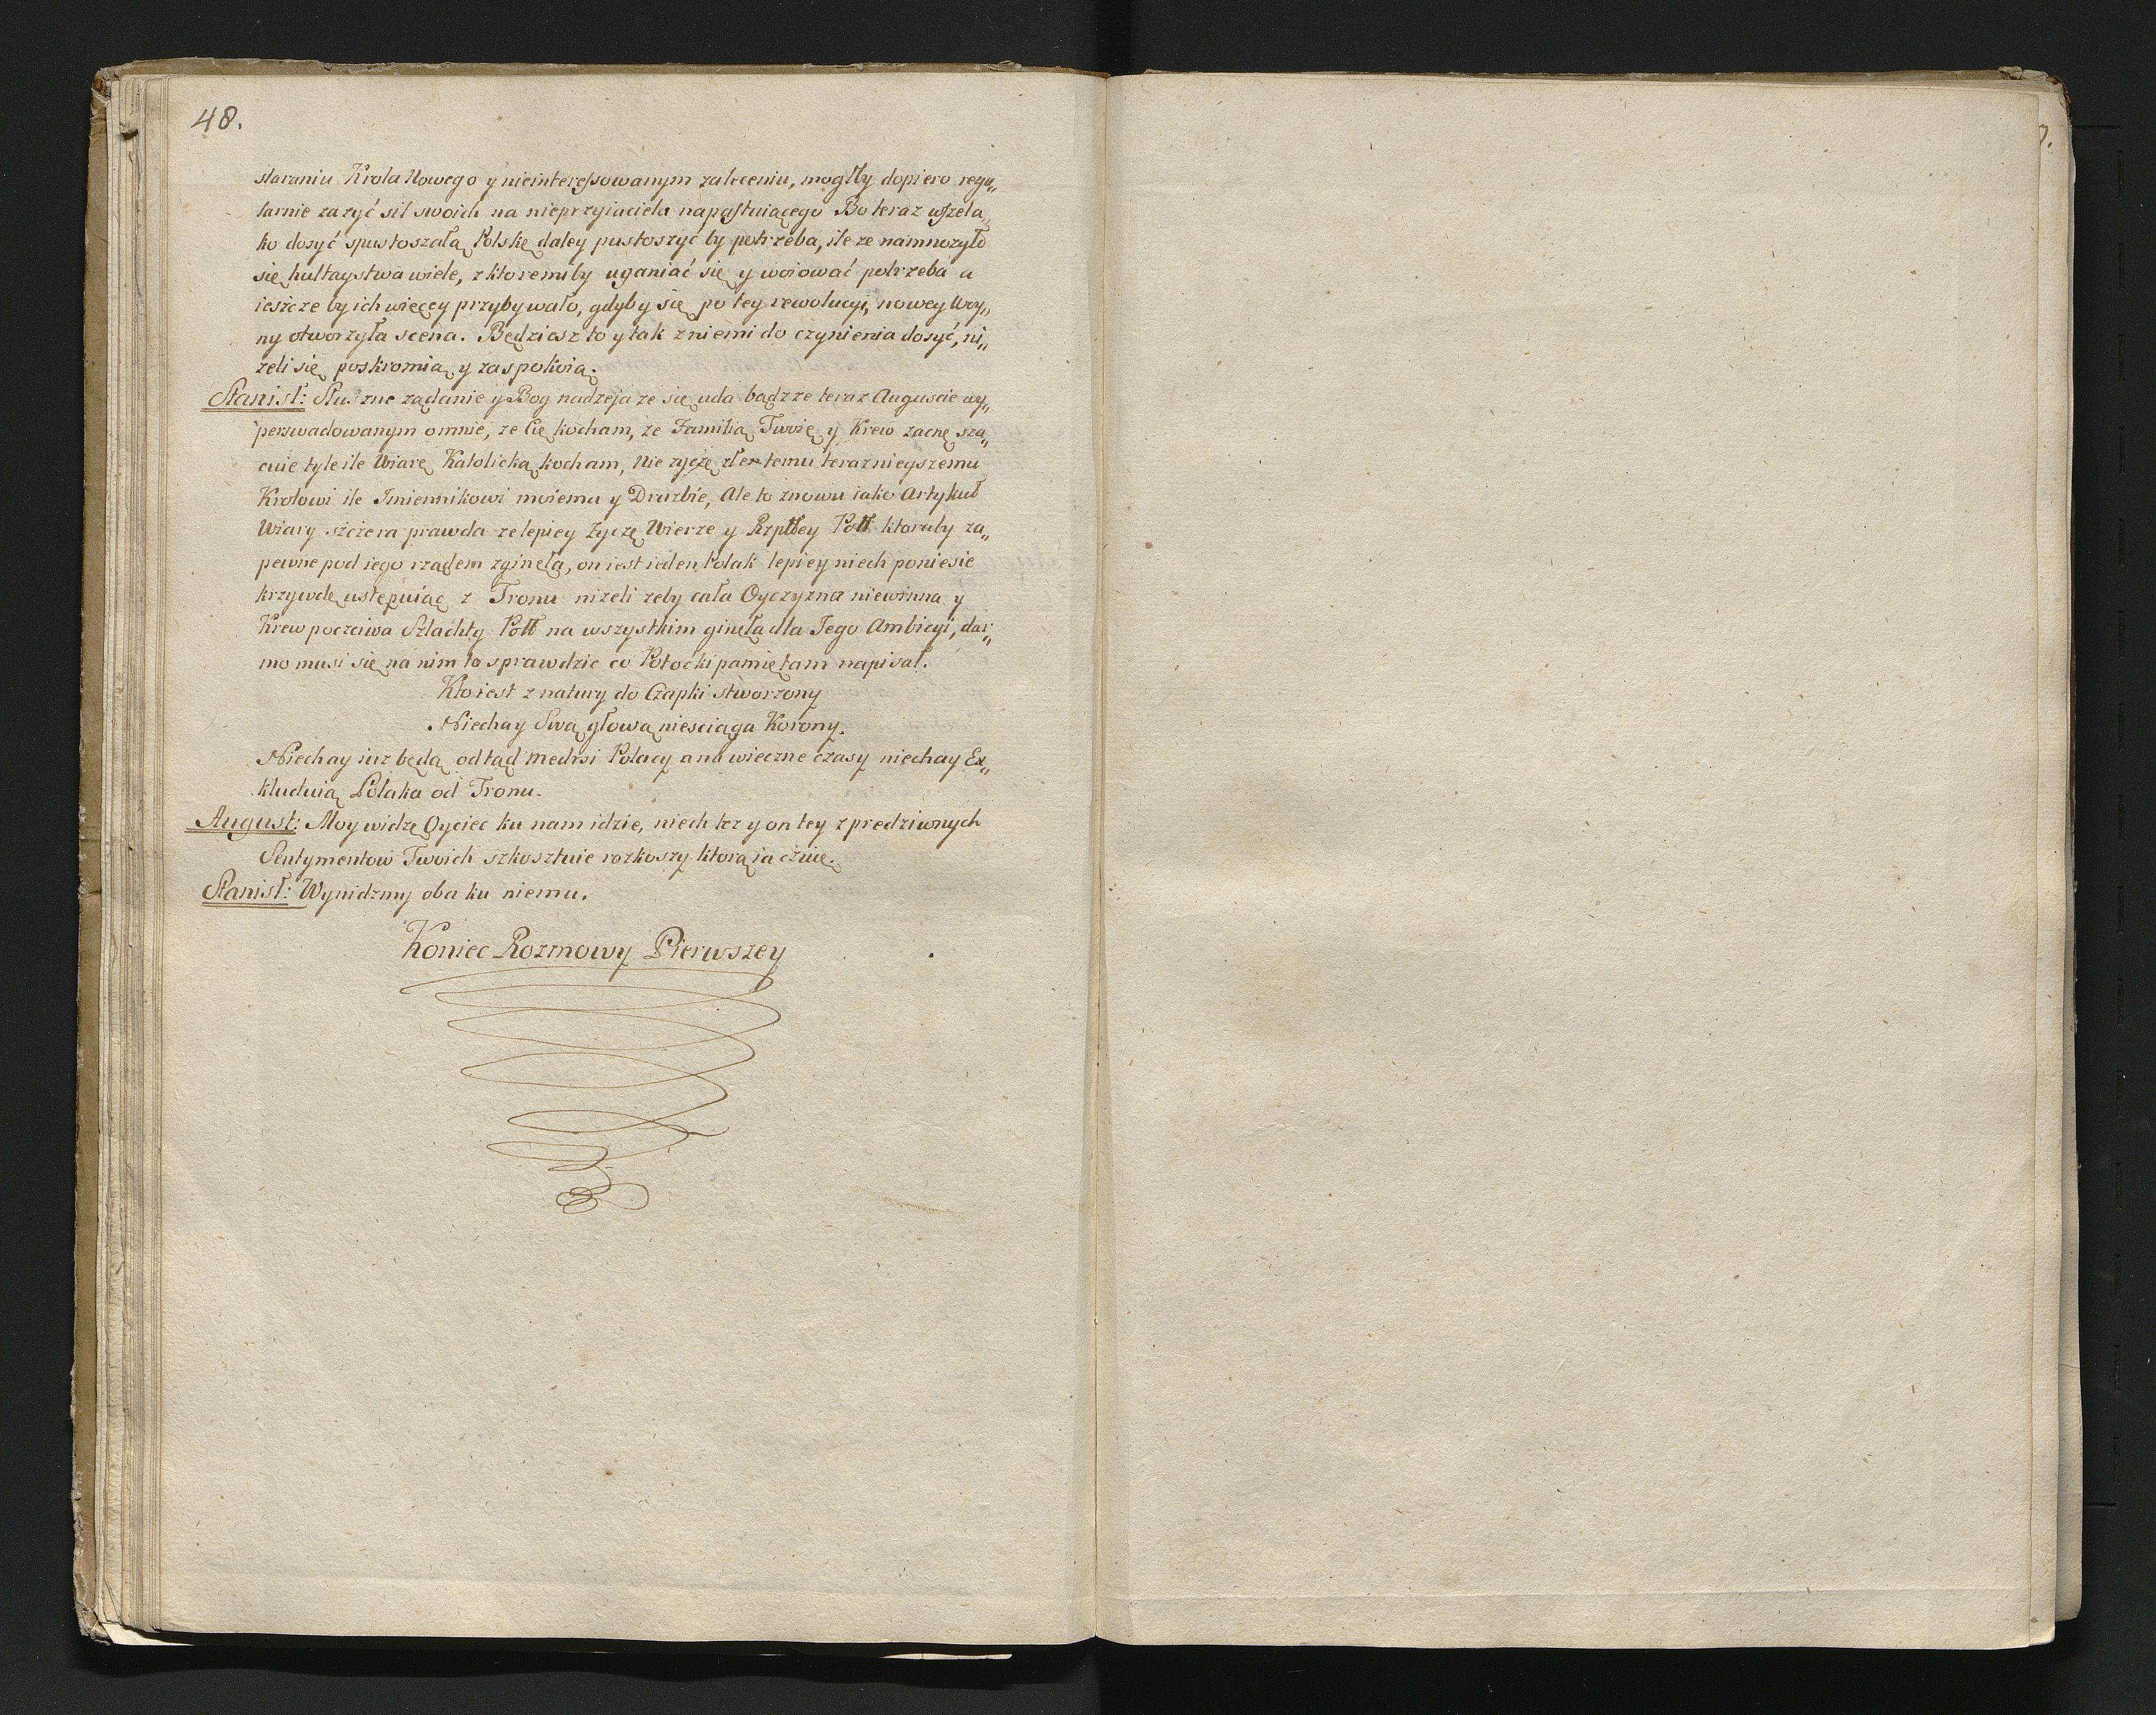 48.
staraniu Krola Nowego y nieinteressowanym zaleceniu, mogłby dopiero regu„
larnie zazyć sil swoich na nieprzyiaciela napastuiącego Bo teraz wszela„
ko dosyć spustoszałą Polskę daley pustoszyć by potrzeba, ile ze namnozyło
się hultaystwa wiele, z ktoremiby uganiać się y woiować potrzeba a
ieszcze by ich więcey przybywało, gdyby się po tey rewolucyi, nowey Woy„
ny otworzyła scena. Będziesz to y tak z niemi do czynienia dosyć, ni„
zeli się poskromią y zaspokoią.
Stanisł: Słuszne ządanie y Bog nadzeja ze się uda bądz ze teraz Auguscie wy„
perswadowanym o mnie, ze Cię kocham, ze Familią Twoię y Krew zacnę sza„
cuię tyle ile Wiarę Katolicką kocham, Nie zyczę złe temu teraznieyszemu
Krolowi ile Imiennikowi moiemu y Druzbie, Ale to znowu iako Artykuł
Wiary szczera prawda ze lepiey Zyczę Wierze y Rzpltey Polł ktoraby za„
pewne pod iego rządem zginęła, on iest ieden Polak lepiey niech poniesie
krzywdę ustępuiąc z Tronu nizeli zeby cała Oyczyzna niewinna y
Krew poczciwa Szlachty Polł na wszystkim ginęła dla Jego Ambicyi, dar„
mo musi się na nim to sprawdzic co Potocki pamiętam napisał.
Kto iest z natury do Czapki stworzony
Niechay Swą głową niesciąga Korony.
Niechay iuz będą odtąd medrsi Polacy a na wieczne czasy niechay Ex„
kluduią Polaka od Tronu.
August: Moy widzę Oyciec ku nam idzie, niech tez y on tey z predziwnych
Sentymentow Twoich szkosztuie rozkoszy ktorą ia czuię.
Stanisł: Wynidzmy oba ku niemu.
Koniec Rozmowy Pierwszey